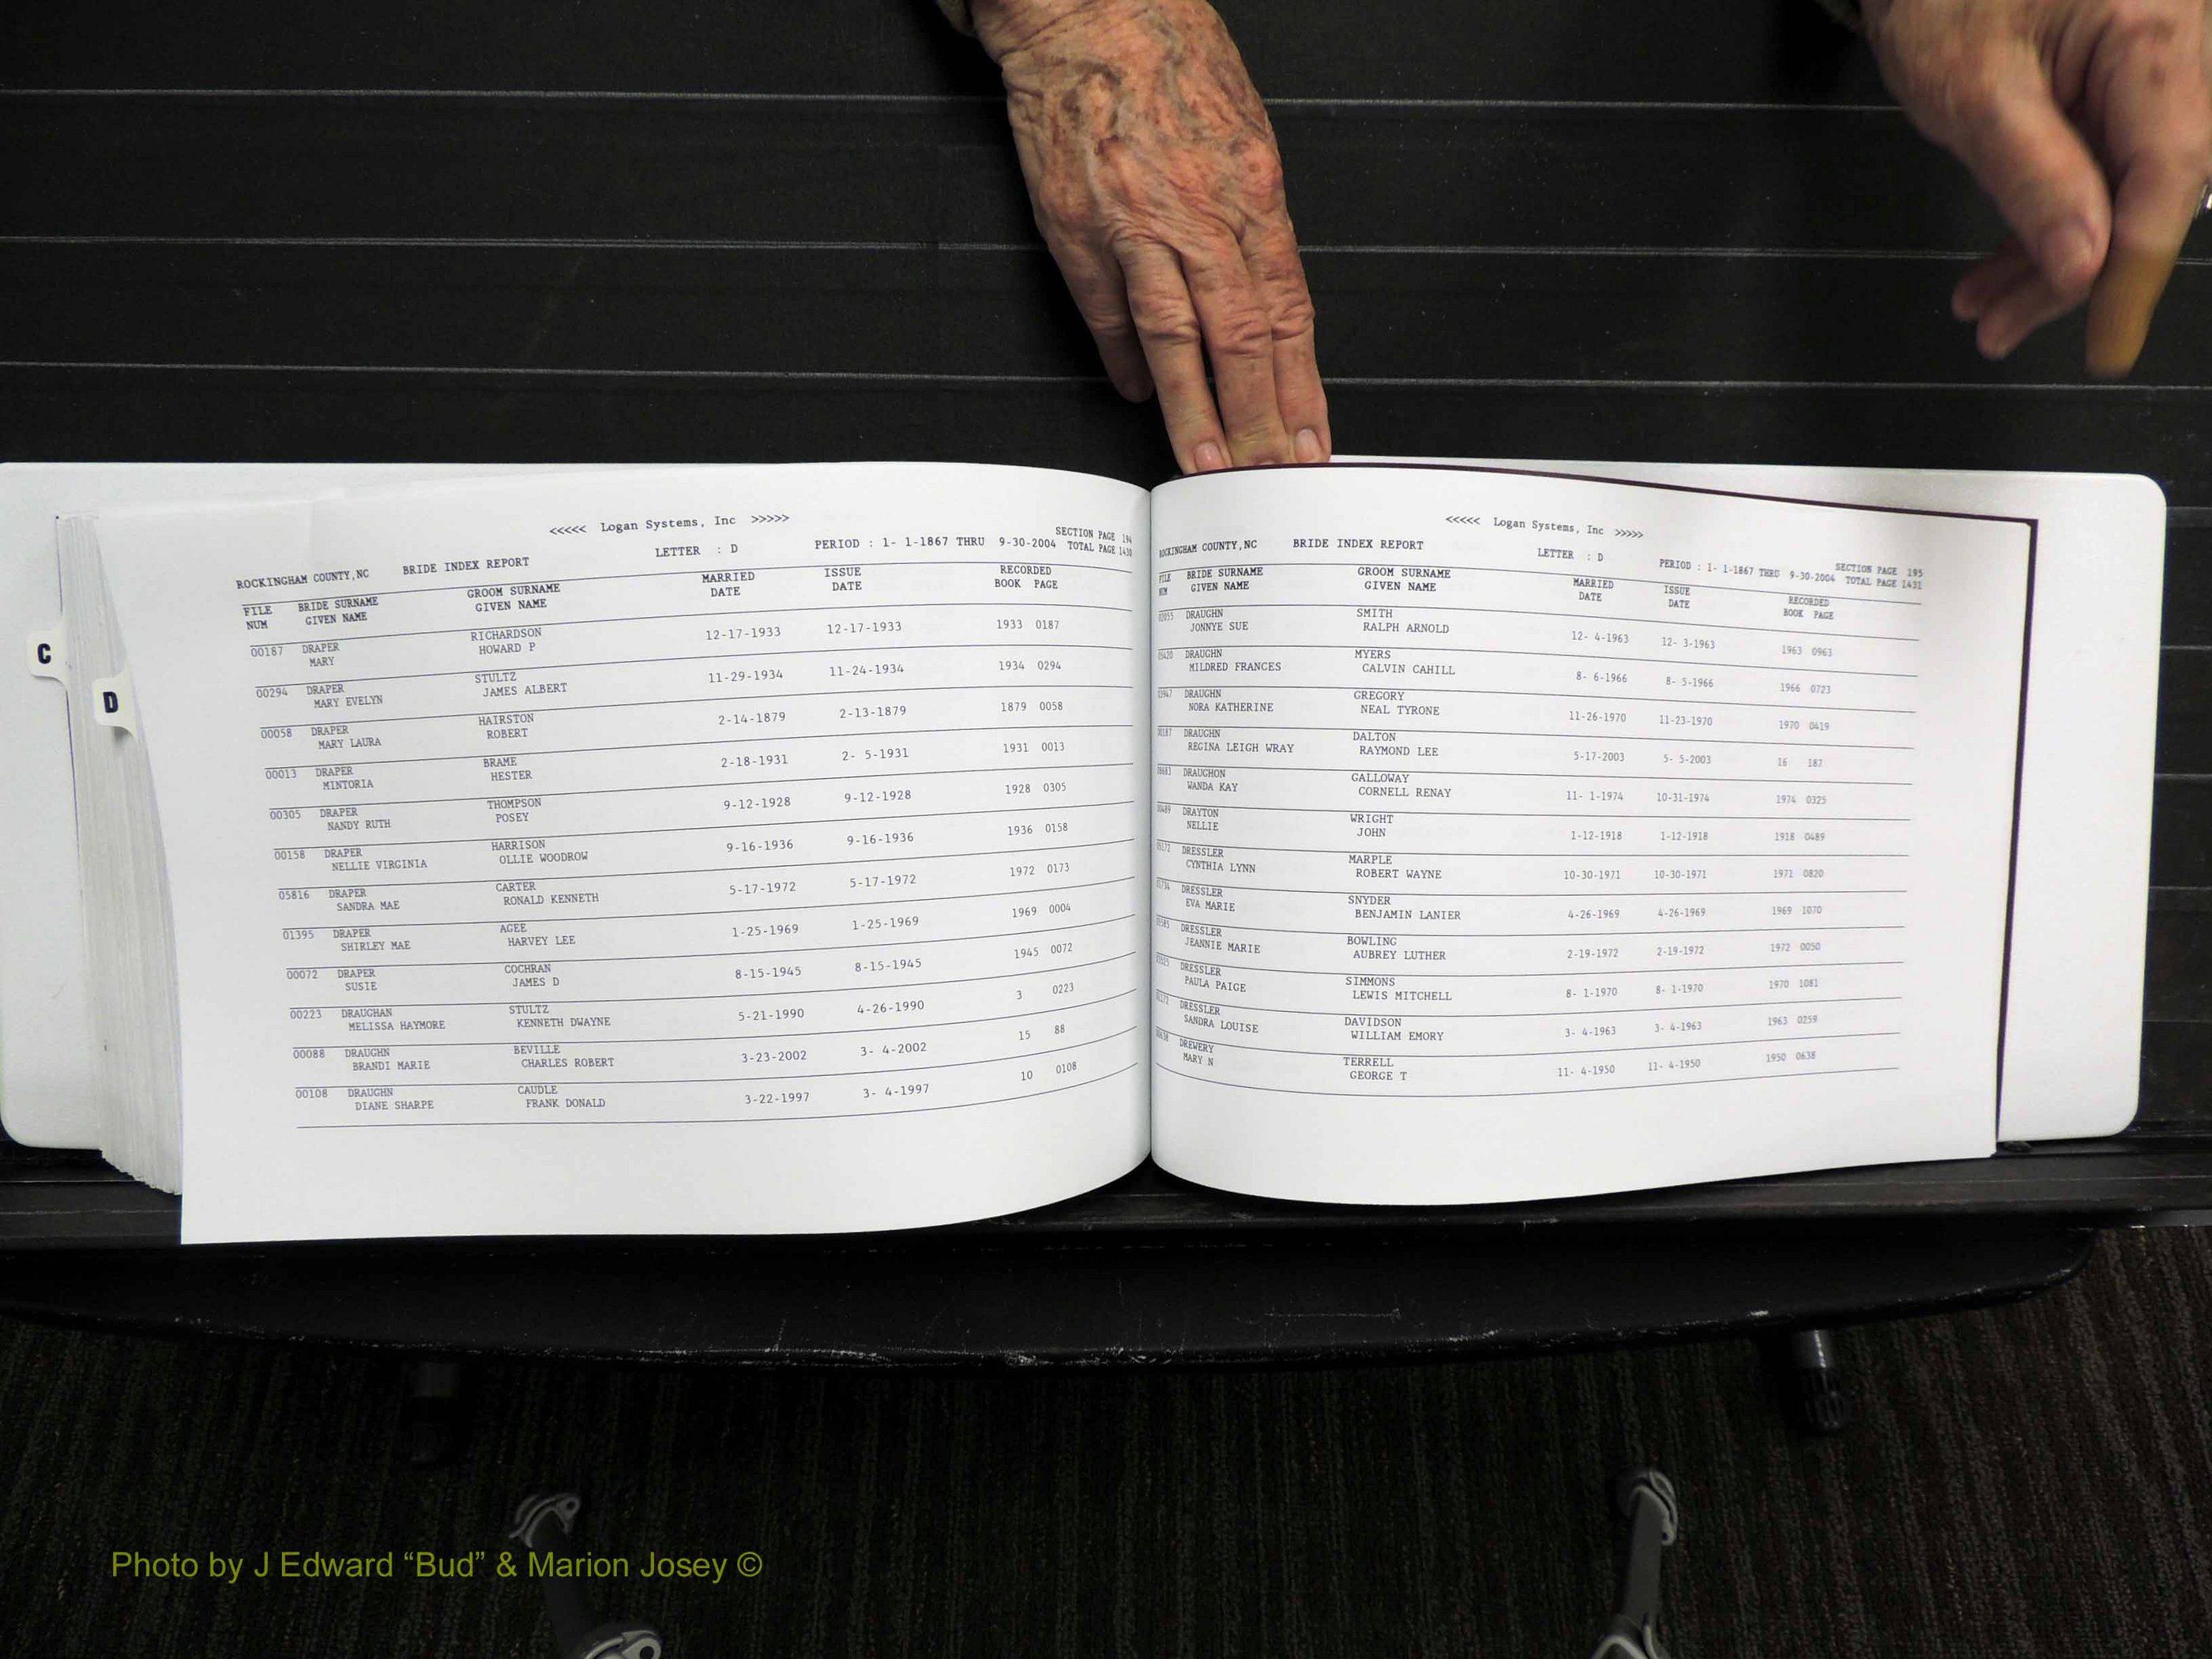 C
D
<<<<< Logan Systems, Inc >>>>>
SECTION PAGE 194
ROCKINGHAM COUNTY,NC BRIDE INDEX REPORT LETTER : D PERIOD : 1- 1-1867 THRU 9-30-2004 TOTAL PAGE 1430
FILE BRIDE SURNAME GROOM SURNAME MARRIED ISSUE RECORDED
NUM GIVEN NAME GIVEN NAME DATE DATE BOOK PAGE
00187 DRAPER RICHARDSON 12-17-1933 12-17-1933 1933 0187
MARY HOWARD P
00294 DRAPER STULTZ 11-29-1934 11-24-1934 1934 0294
MARY EVELYN JAMES ALBERT
00058 DRAPER HAIRSTON 2-14-1879 2-13-1879 1879 0058
MARY LAURA ROBERT
00013 DRAPER BRAME 2-18-1931 2- 5-1931 1931 0013
MINTORIA HESTER
00305 DRAPER THOMPSON 9-12-1928 9-12-1928 1928 0305
NANDY RUTH POSEY
00158 DRAPER HARRISON 9-16-1936 9-16-1936 1936 0158
NELLIE VIRGINIA OLLIE WOODROW
05816 DRAPER CARTER 5-17-1972 5-17-1972 1972 0173
SANDRA MAE RONALD KENNETH
01395 DRAPER AGEE 1-25-1969 1-25-1969 1969 0004
SHIRLEY MAE HARVEY LEE
00072 DRAPER COCHRAN 8-15-1945 8-15-1945 1945 0072
SUSIE JAMES D
00223 DRAUGHAN STULTZ 5-21-1990 4-26-1990 3 0223
MELISSA HAYMORE KENNETH DWAYNE
00088 DRAUGHN BEVILLE 3-23-2002 3- 4-2002 15 88
BRANDI MARIE CHARLES ROBERT
00108 DRAUGHN CAUDLE 3-22-1997 3- 4-1997 10 0108
DIANE SHARPE FRANK DONALD
<<<<< Logan Systems, Inc >>>>>
SECTION PAGE 195
ROCKINGHAM COUNTY,NC BRIDE INDEX REPORT LETTER : D PERIOD : 1- 1-1867 THRU 9-30-2004 TOTAL PAGE 1431
FILE BRIDE SURNAME GROOM SURNAME MARRIED ISSUE RECORDED
NUM GIVEN NAME GIVEN NAME DATE DATE BOOK PAGE
DRAUGHN SMITH 12- 4-1963 12- 3-1963 1963 0963
JONNYE SUE RALPH ARNOLD
DRAUGHN MYERS 8- 6-1966 8- 5-1966 1966 0723
MILDRED FRANCES CALVIN CAHILL
DRAUGHN GREGORY 11-26-1970 11-23-1970 1970 0419
NORA KATHERINE NEAL TYRONE
DRAUGHN DALTON 5-17-2003 5- 5-2003 16 187
REGINA LEIGH WRAY RAYMOND LEE
DRAUGHON GALLOWAY 11- 1-1974 10-31-1974 1974 0325
WANDA KAY CORNELL RENAY
DRAYTON WRIGHT 1-12-1918 1-12-1918 1918 0489
NELLIE JOHN
DRESSLER MARPLE 10-30-1971 10-30-1971 1971 0820
CYNTHIA LYNN ROBERT WAYNE
DRESSLER SNYDER 4-26-1969 4-26-1969 1969 1070
EVA MARIE BENJAMIN LANIER
DRESSLER BOWLING 2-19-1972 2-19-1972 1972 0050
JEANNIE MARIE AUBREY LUTHER
DRESSLER SIMMONS 8- 1-1970 8- 1-1970 1970 1081
PAULA PAIGE LEWIS MITCHELL
DRESSLER DAVIDSON 3- 4-1963 3- 4-1963 1963 0259
SANDRA LOUISE WILLIAM EMORY
DREWERY TERRELL 11- 4-1950 11- 4-1950 1950 0638
MARY N GEORGE T
Photo by J Edward “Bud” & Marion Josey ©